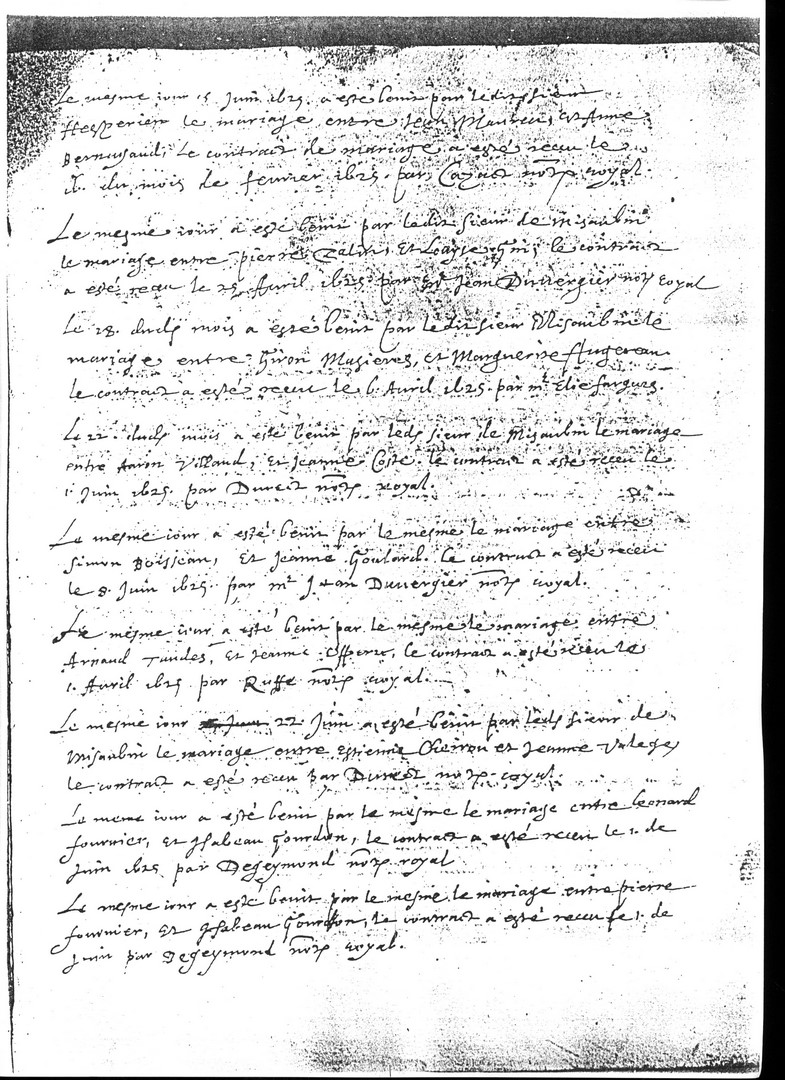 Le mesme iour 15 Juin 1625. a esté benit par ledit sieur
Hesperien le mariage entre Jean Maureu, et Anne
Bernugaud, Le contract de mariage a esté receu le
du mois de feurier 1625. par not.re royal.
Le mesme iour a esté benit par ledit sieur de Misaubin
le mariage entre pierre et le contract
a esté receu le 25 Auril 1625 par Mr Jean Duuergier not.re royal
Le 28. dud. mois a esté benit par ledit sieur Misaubin le
mariage entre Giron Masieres, et Marguerite Augereau
le contract a esté receu le 6. Auril 1625. par mr Élie fargues.
Le 22. dud. mois a esté benit par led. sieur de Misaubin le mariage
entre Aaron Villaud, et Jeanne Coste. le contract a esté receu le
1. Juin 1625. par Durest not.re royal.
Le mesme iour a esté benit par le mesme le mariage entre
Simon Boisseau, et Jeanne Goulard. le contract a esté receu
le 8. Juin 1625. par mr Jean Duuergier not.re royal.
Le mesme iour a esté benit par le mesme le mariage entre
Arnaud et Jeanne le contract a esté receu le
1. Auril 1625 par Ruffe not.re royal.
Le mesme iour 22. Juin a esté benit par led. sieur de
Misaubin le mariage entre Estienne Cheiron et Jeanne Valege,
le contract a esté receu par Durest not.re royal.
Le mesme iour a esté benit par le mesme le mariage entre Leonard
fournier, et Isabeau Gourdon, le contract a esté receu le 1. de
Juin 1625 par Degeymond not.re royal
Le mesme iour a esté benit par le mesme le mariage entre pierre
fournier, et Isabeau Gourdon, le contract a esté receu le 1. de
Juin par Degeymond not.re royal.